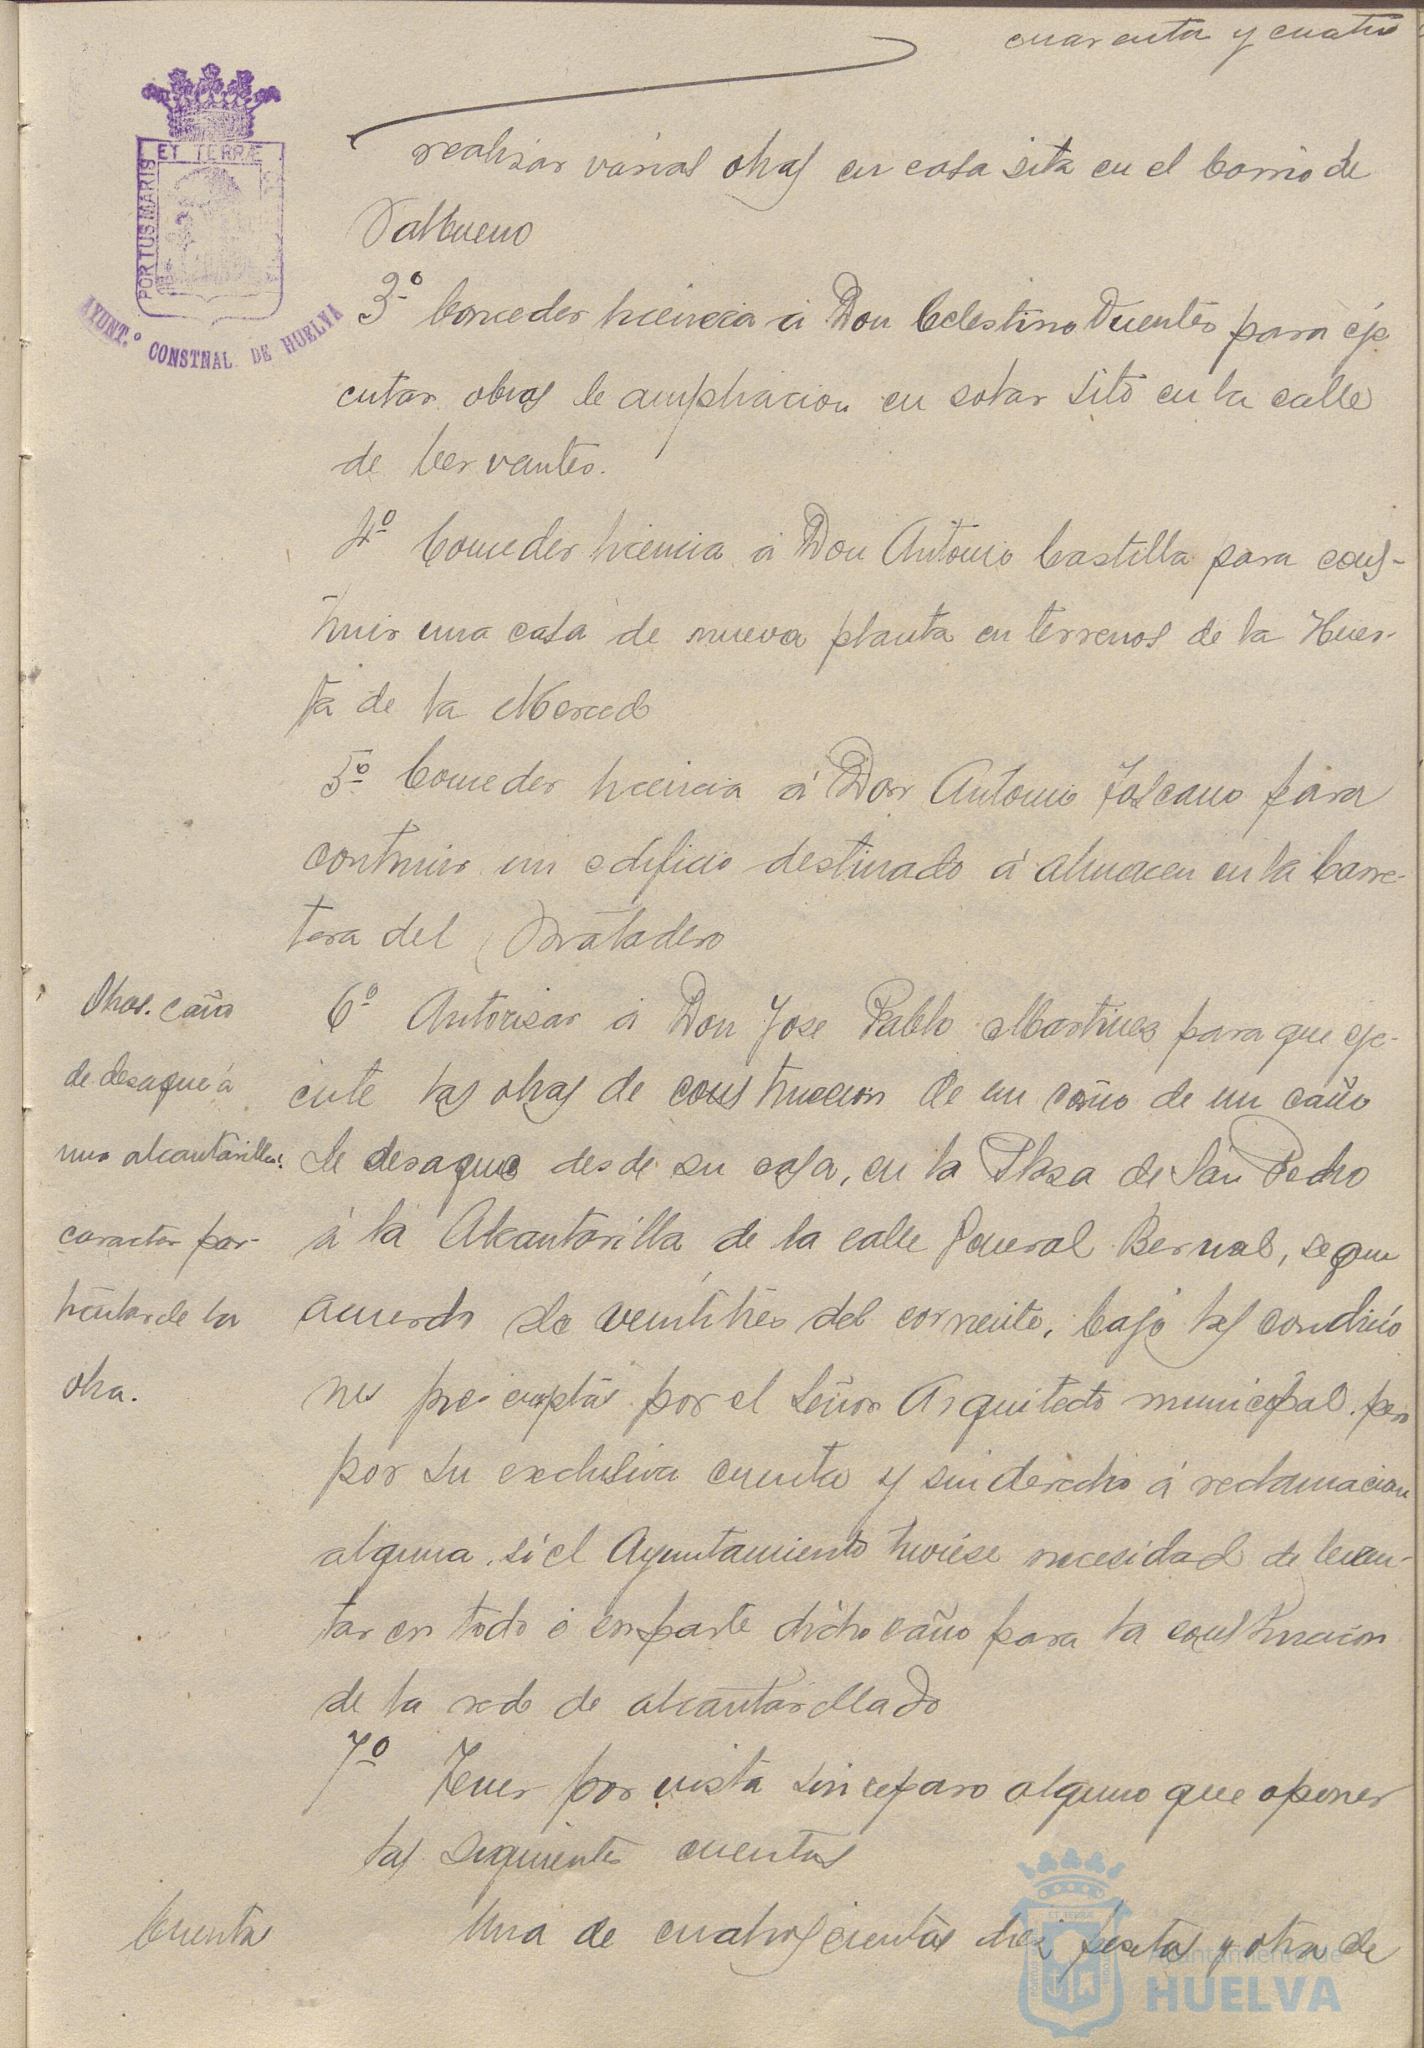 cuarenta y cuatro
ET TERRÆ
PORTUS MARIS
AYUNT.º CONSTNAL. DE HUELVA
realisar varias obras en casa sita en el barrio de
Valbueno
3º Conceder licencia á Don Celestino Fuentes para eje
cutar obras de ampliacion en solar sito en la calle
de Cervantes.
4º Conceder licencia á Don Antonio Castilla para cons-
truir una casa de nueva planta en terrenos de la Huer-
ta de la Merced
5º Conceder licencia á Don Antonio Toscano para
contruir un edificio destinado á almacen en la Carre-
tera del Matadero
Obras. caño
de desague á
una alcantarilla:
caracter par-
ticular de la
obra.
6º Autorisar á Don Jose Pablo Martines para que eje-
cute las obras de construccion de un caño de un caño
de desague desde su casa, en la Plasa de San Pedro
á la Alcantarilla de la calle General Bernal, segun
acuerdo de veintitres del corriente, bajo las condicio
nes preceptas por el Señor Arquitecto municipal. pero
por su exclusiva cuenta y sin derecho á reclamacion
alguna, si el Ayuntamiento tuviese necesidad de levan-
tar en todo ó en parte dicho caño para la construcion
de la red de alcantarillado
7º Tener por vista sin reparo alguno que oponer
las siguientes cuentas
Cuentas
Una de cuatroscientas diez pesetas y otra de
Ayuntamiento de
HUELVA